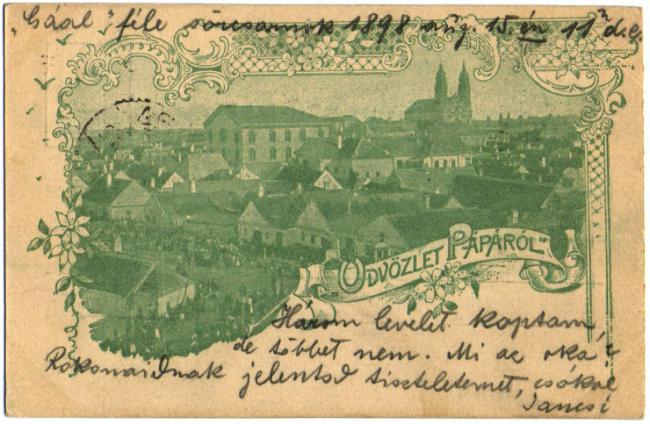 „Gáal" féle sörcsarnok 1898 aug. 15.én 11h d.e.
ÜDVÖZLET PÁPÁRÓL"
Három levelet kaptam,
de többet nem. Mi az oka?
Rokonaidnak jelentsd tiszteletemet, csókol
Jancsi